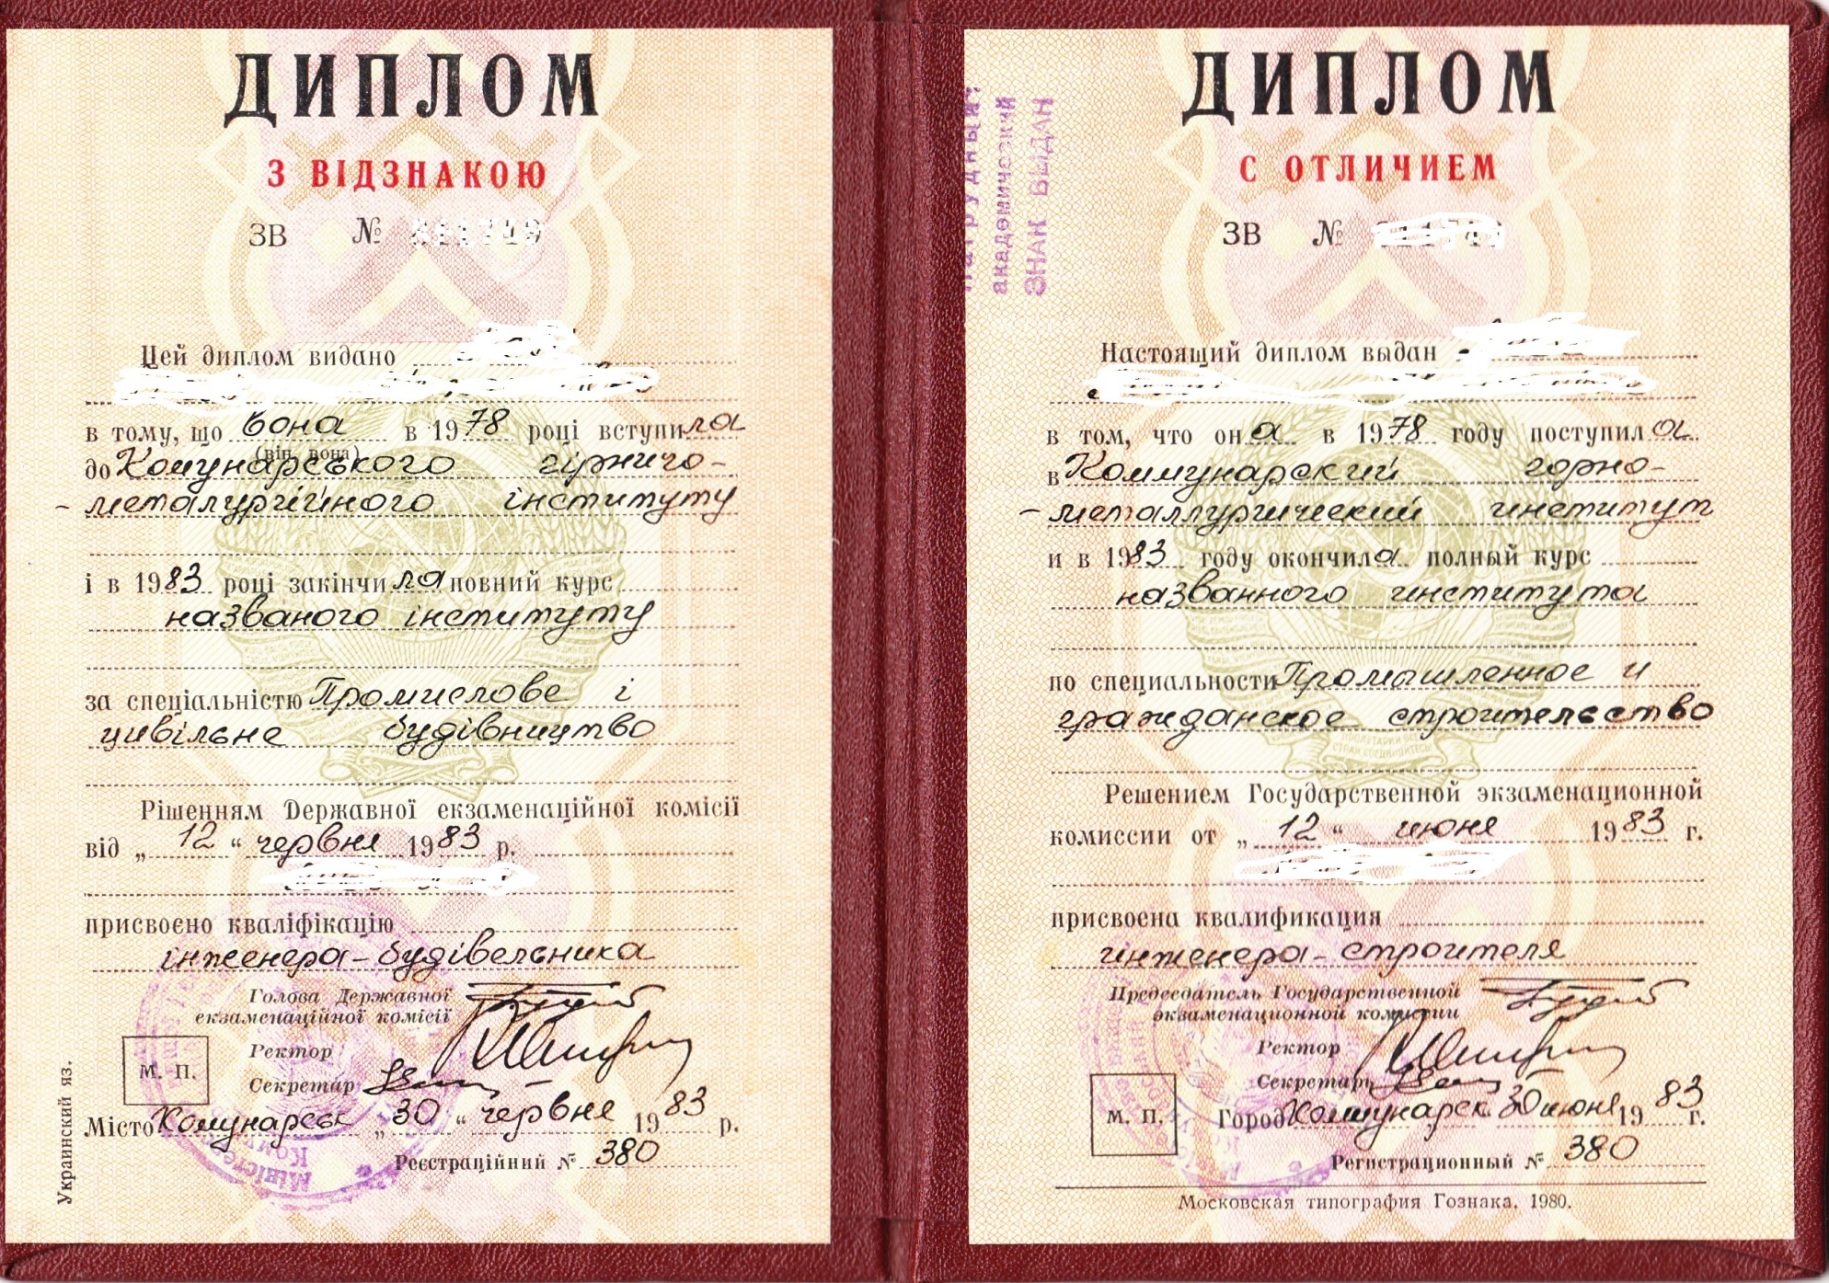 ДИПЛОМ
З ВІДЗНАКОЮ
ЗВ №
Цей диплом видано
в тому, що вона в 1978 році вступила
(він, вона)
до Комунарського гірничо-
-металургійного інституту
і в 1983 році закінчила повний курс
названого інституту
за спеціальністю Промислове і
цивільне будівництво
Рішенням Державної екзаменаційної комісії
від „12“ червня 1983 р.
присвоєно кваліфікацію
інженера-будівельника
Голова Державної
екзаменаційної комісії
Ректор
М. П.
Секретар
Місто Комунарськ „30“ червня 1983 р.
Реєстраційний № 380
Украинский яз.
ДИПЛОМ
С ОТЛИЧИЕМ
ЗВ №
Нагрудный
академический
ЗНАК ВЫДАН
Настоящий диплом выдан
в том, что она в 1978 году поступила
в Коммунарский горно-
-металлургический институт
и в 1983 году окончила полный курс
названного института
по специальности Промышленное и
гражданское строительство
Решением Государственной экзаменационной
комиссии от „12“ июня 1983 г.
присвоена квалификация
инженера-строителя
Председатель Государственной
экзаменационной комиссии
Ректор
Секретарь
М. П.
Город Коммунарск 30 июня 1983 г.
Регистрационный № 380
Московская типография Гознака, 1980.